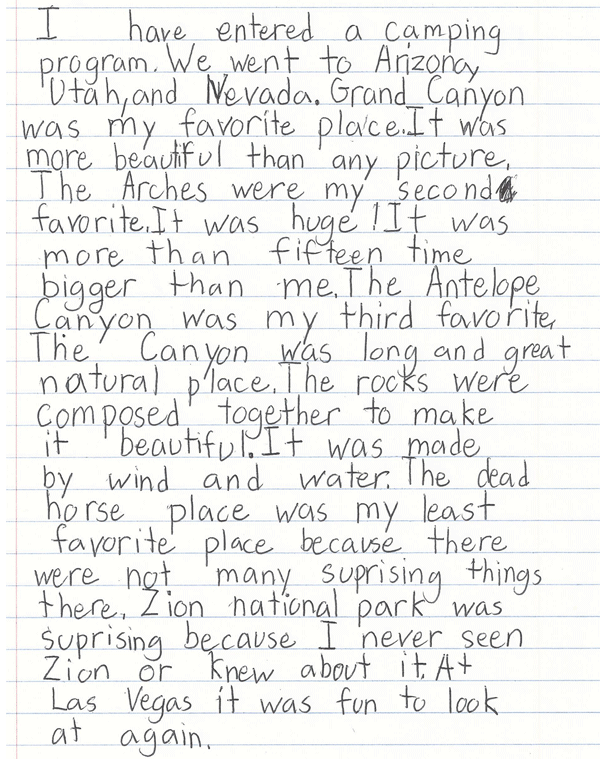 I have entered a camping
program. We went to Arizona,
Utah, and Nevada. Grand Canyon
was my favorite place. It was
more beautiful than any picture.
The Arches were my second
favorite. It was huge! It was
more than fifteen time
bigger than me. The Antelope
Canyon was my third favorite.
The Canyon was long and great
natural place. The rocks were
composed together to make
it beautiful. It was made
by wind and water. The dead
horse place was my least
favorite place because there
were not many suprising things
there. Zion national park was
suprising because I never seen
Zion or knew about it. At
Las Vegas it was fun to look
at again.